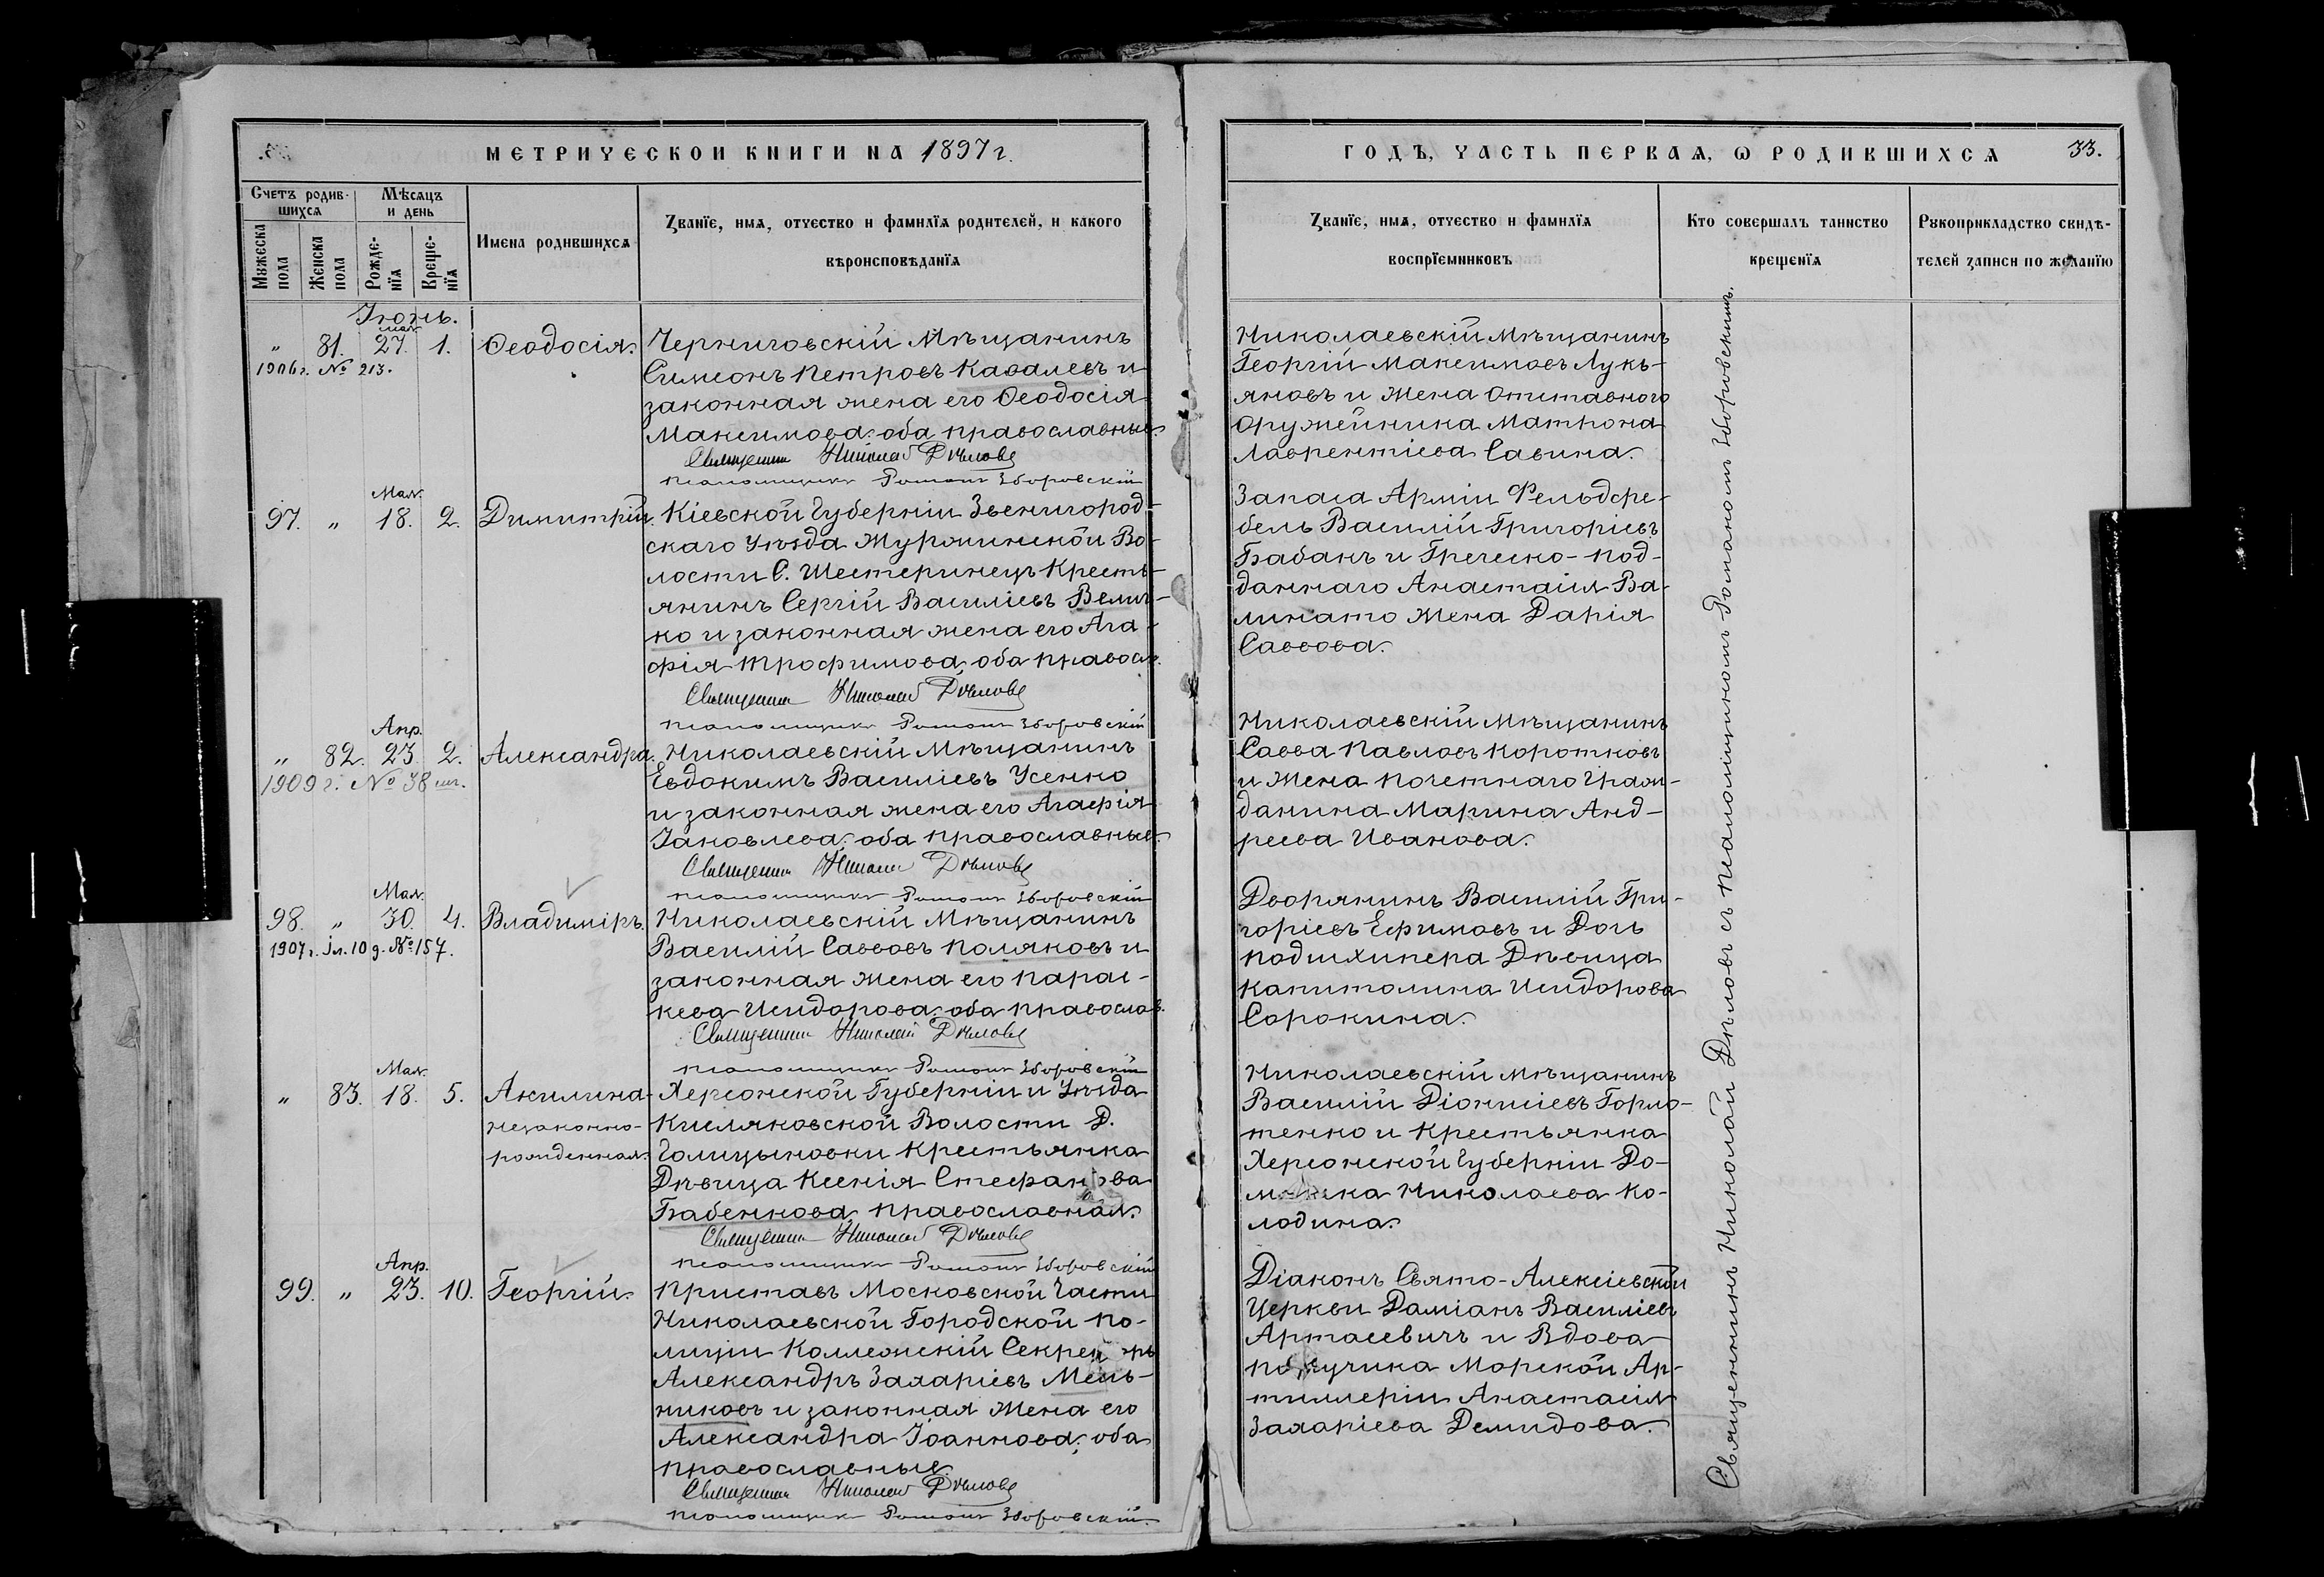 МЕТРИЧЕСКОЙ КНИГИ НА 1897 г.
Счетъ родив-
шихся
Мѣсяцъ
и день
Мужеска
пола
Женска
пола
Рожде-
нія
Креще-
нія
Имена родившихся
Званіе, имя, отчество и фамилія родителей, и какого
вѣроисповѣданія
Іюнь.
Мая.
" 81. 27. 1. Ѳеодосія. Черниговскій Мѣщанинъ
1906 г. № 213.
Симеонъ Петровъ Кавалевъ и
законная жена его Ѳеодосія
Максимова; оба православные.
Священникъ Николай Дѣловъ
псаломщикъ Романъ Зборовскій
Мая.
97. " 18. 2. Димитрій. Кіевской Губерніи Звенигород-
скаго Уѣзда Муржинской Во-
лости С. Шестеринецъ Кресть-
янинъ Сергій Василіевъ Велич-
ко и законная жена его Ага-
фія Трофимова; оба правосл.
Священникъ Николай Дѣловъ
псаломщикъ Романъ Зборовскій
Апр.
" 82. 23. 2. Александра. Николаевскій Мѣщанинъ
1909 г. № 38
Евдокимъ Василіевъ Усенко
и законная жена его Агафія
Іаковлева; оба православные.
Священникъ Николай Дѣловъ
псаломщикъ Романъ Зборовскій
Мая.
98. " 30. 4. Владиміръ. Николаевскій Мѣщанинъ
1907 г. Іл. 10 д. № 157.
Василій Саввовъ Поляковъ и
законная жена его Парас-
кева Исидорова; оба православ.
Священникъ Николай Дѣловъ
псаломщикъ Романъ Зборовскій
Мая.
" 83. 18. 5. Акилина Херсонской Губерніи и Уѣзда
незаконно- Кисляковской Волости Д.
рожденная. Голицыновки Крестьянка
Дѣвица Ксенія Стефанова
Бабенкова, православная.
Священникъ Николай Дѣловъ
псаломщикъ Романъ Зборовскій
Апр.
99. " 23. 10. Георгій. Приставъ Московской Части
Николаевской Городской По-
лиціи Коллежскій Секретарь
Александръ Захаріевъ Мель-
никовъ и законная Жена его
Александра Іоаннова; оба
православные.
Священникъ Николай Дѣловъ
псаломщикъ Романъ Зборовскій.
ГОДЪ, ЧАСТЬ ПЕРВАЯ, Ѡ РОДИВШИХСЯ 33.
Званіе, имя, отчество и фамилія
воспріемниковъ
Кто совершалъ таинство
крещенія
Рукоприкладство свидѣ-
телей записи по желанію
Николаевскій Мѣщанинъ
Георгій Максимовъ Лукь-
яновъ и Жена Отставного
Оружейника Матрона
Лаврентіева Савина.
Запаса Арміи Фельдфе-
бель Василій Григоріевъ
Бабакъ и Греческо-Под-
даннаго Анастасія Ва-
ликато Жена Дарія
Саввова.
Николаевскій Мѣщанинъ
Савва Павловъ Коротковъ
и Жена Почетнаго Граж-
данина Марина Анд-
реева Иванова.
Дворянинъ Василій Гри-
горіевъ Ефимовъ и Дочь
подшхипера Дѣвица
Капитолина Исидорова
Сорокина.
Николаевскій мѣщанинъ
Василій Діонисіевъ Горло-
тенко и Крестьянка
Херсонской Губерніи До-
мникa Николаева Ко-
лодина.
Діаконъ Свято-Алексіевской
Церкви Даміанъ Василіевъ
Артасевичъ и Вдова
поручика Морской Ар-
тиллеріи Анастасія
Захаріева Демидова.
Священникъ Николай Дѣловъ съ псаломщикомъ Романомъ Зборовскимъ.